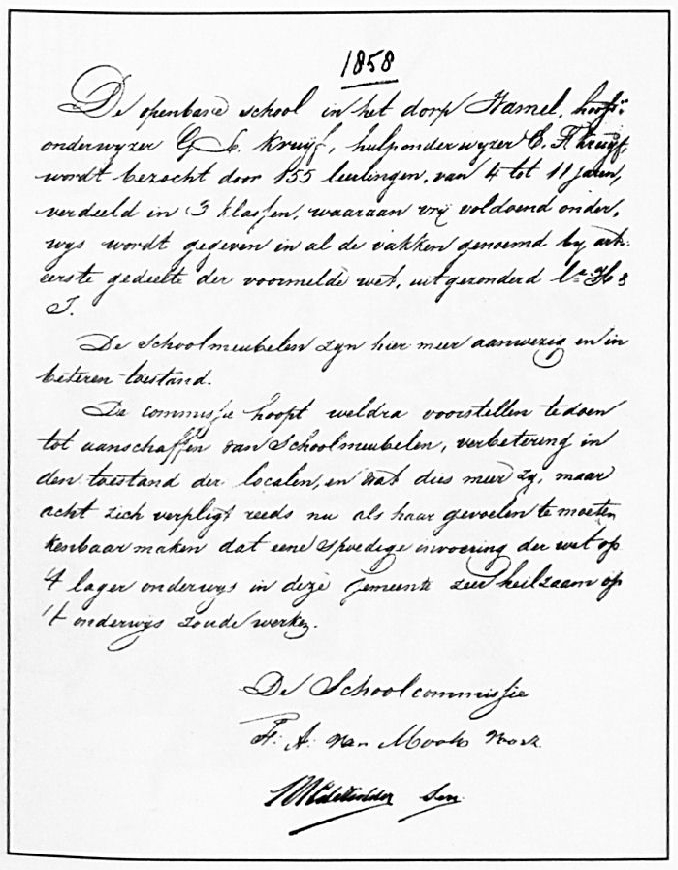 1858
De openbare school in het dorp Hamel, hoofd-
onderwyzer G. L. Kruijf, hulponderwyzer C. F. Kruijf,
wordt bezocht door 155 leerlingen, van 4 tot 11 jaren,
verdeeld in 3 klassen, waaraan vrij voldoend onder-
wys wordt gegeven in al de vakken genoemd by art.
eerste gedeelte der voormelde wet, uitgezonderd
De Schoolmeubelen zyn hier meer aanwezig en in
beteren toestand.
De commissie hoopt weldra voorstellen te doen
tot aanschaffen van Schoolmeubelen, verbetering in
den toestand der localen, en wat dies meer zy, maar
acht zich verpligt reeds nu als haar gevoelen te moeten
kenbaar maken dat eene spoedige invoering der wet op
't lager onderwys in deze gemeente zeer heilzaam op
't onderwijs zoude werken.
De Schoolcommissie
F. A. van
Sen